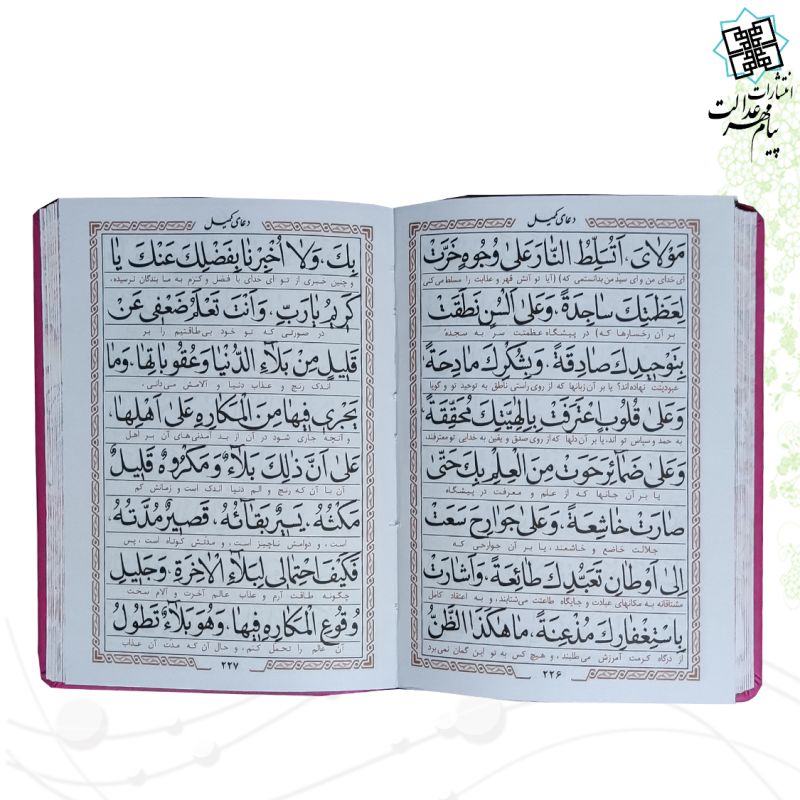 انتشارات
پیام مهر عدالت
دعای کمیل
مَوْلایَ، اَتُسَلِّطُ النّارَ عَلیٰ وُجُوهٍ خَرَّتْ
ای خدای من و ای سید من بدانستمی که) (آیا تو آتش قهر و عذابت را مسلط می‌کنی
لِعَظَمَتِكَ ساجِدَةً، وَ عَلیٰ اَلْسُنٍ نَطَقَتْ
بر آن رخسارها که) در پیشگاه عظمتت سر به سجده
بِتَوْحیدِكَ صادِقَةً، وَ بِشُكْرِكَ مادِحَةً
عبودیتت نهاده‌اند؟ یا بر آن زبانها که از روی راستی ناطق به توحید تو و گویا
وَ عَلیٰ قُلُوبٍ اعْتَرَفَتْ بِاِلٰهِیَّتِكَ مُحَقِّقَةً
به حمد و سپاس تو اند، یا بر آن دلها که از روی صدق و یقین به خدایی تو معترفند،
وَ عَلیٰ ضَمآئِرَ حَوَتْ مِنَ الْعِلْمِ بِكَ حَتّیٰ
یا بر آن جانها که از علم و معرفت در پیشگاه
صارَتْ خاشِعَةً، وَ عَلیٰ جَوارِحَ سَعَتْ
جلالت خاضع و خاشعند، یا بر آن جوارحی که
اِلیٰ اَوْطانِ تَعَبُّدِكَ طآئِعَةً، وَ اَشارَتْ
مشتاقانه به مکانهای عبادت و جایگاه طاعتت می‌شتابند، و به اعتقاد کامل
بِاسْتِغْفارِكَ مُذْعِنَةً، ما هٰكَذَا الظَّنُّ
از درگاه کرمت آمرزش می‌طلبند، و هیچ کس به تو این گمان نمی‌برد
۲۲۶
دعای کمیل
بِكَ، وَ لا اُخْبِرْنا بِفَضْلِكَ عَنْكَ یا
و چنین خبری از تو ای خدای با فضل و کرم به ما بندگان نرسیده،
كَریمُ یا رَبِّ، وَ اَنْتَ تَعْلَمُ ضَعْفی عَنْ
در صورتی که تو خود بی‌طاقتیم را بر
قَلیلٍ مِنْ بَلآءِ الدُّنْیا وَ عُقُوباتِها، وَ ما
اندک رنج و عذاب دنیا و آلامش می‌دانی،
یَجْری فیها مِنَ الْمَكارِهِ عَلیٰ اَهْلِها،
و آنچه جاری شود در آن از بد آمدنی‌های آن بر اهل
عَلیٰ اَنَّ ذٰلِكَ بَلآءٌ وَ مَكْرُوهٌ قَلیلٌ
آن با آن که رنج و الم دنیا اندک است و زمانش کم
مَكْثُهُ، یَسیرٌ بَقآئُهُ، قَصیرٌ مُدَّتُهُ،
است، و دوامش ناچیز است، و مدتش کوتاه است، پس
فَكَیْفَ احْتِمالی لِبَلآءِ الْاٰخِرَةِ، وَ جَلیلِ
چگونه طاقت آرم و عذاب عالم آخرت و آلام سخت
وُقُوعِ الْمَكارِهِ فیها، وَ هُوَ بَلآءٌ تَطُولُ
آن عالم را تحمل کنم، و حال آن که مدت آن عذاب
۲۲۷